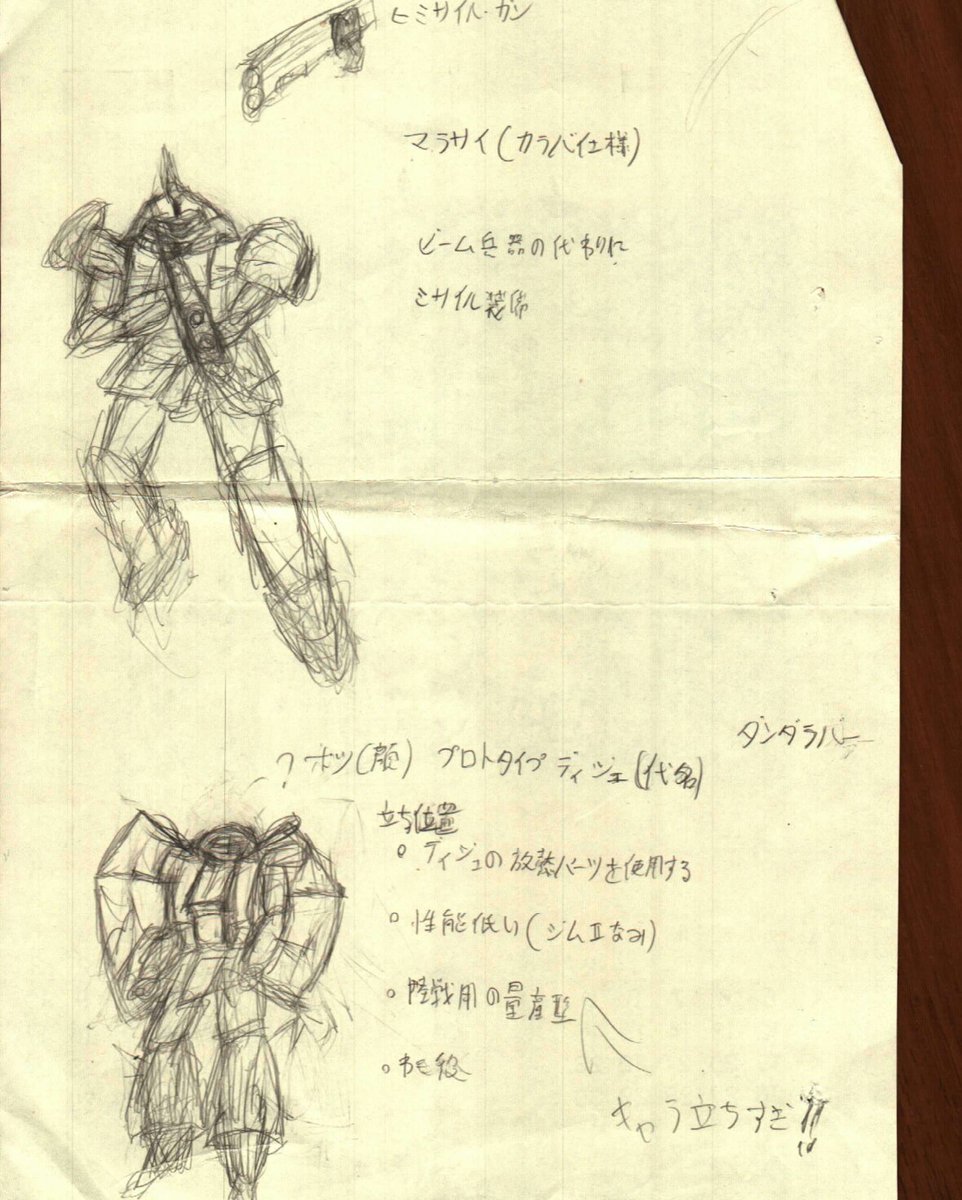 ミサイル・ガン
マラサイ(カラバ仕様)
ビーム兵器の代わりに
ミサイル装備
ダンダラバー
?ボツ(顔) プロトタイプディジェ(代名)
立ち位置
○ ディジェの放熱パーツを使用する
○ 性能低い(ジムⅡなみ)
○ 陸戦用の量産型
○ やられ役
キャラ立ちすぎ!!